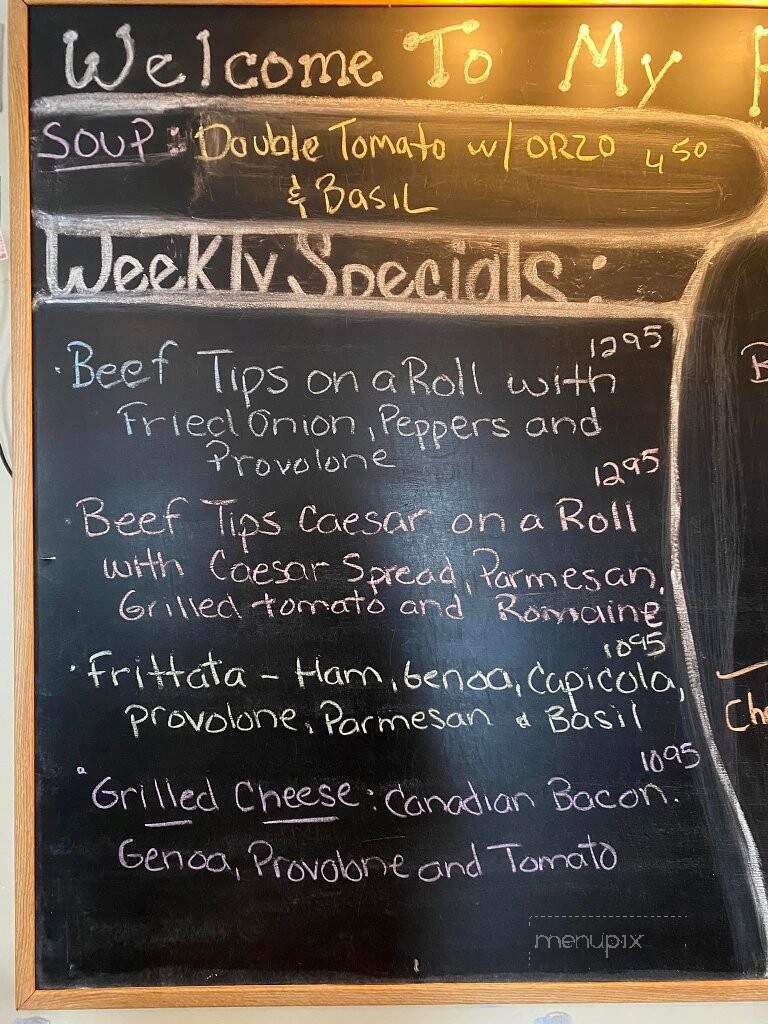 Welcome To My
SOUP: Double Tomato w/ ORZO 4 50
& Basil
Weekly Specials:
12 95
· Beef Tips on a Roll with
Fried Onion, Peppers and
Provolone
12 95
· Beef Tips Caesar on a Roll
with Caesar Spread, Parmesan,
Grilled tomato and Romaine
10 95
· Frittata - Ham, Genoa, Capicola,
Provolone, Parmesan & Basil
10 95
Grilled Cheese: Canadian Bacon.
Genoa, Provolone and Tomato
menupix